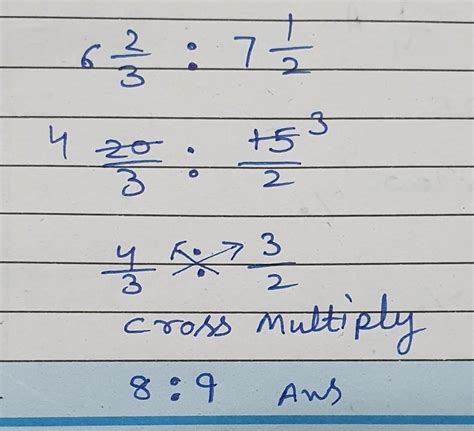 6 2/3 : 7 1/2
4 20/3 : 15/2 3
4/3 : 3/2
Cross Multiply
8:9 Ans